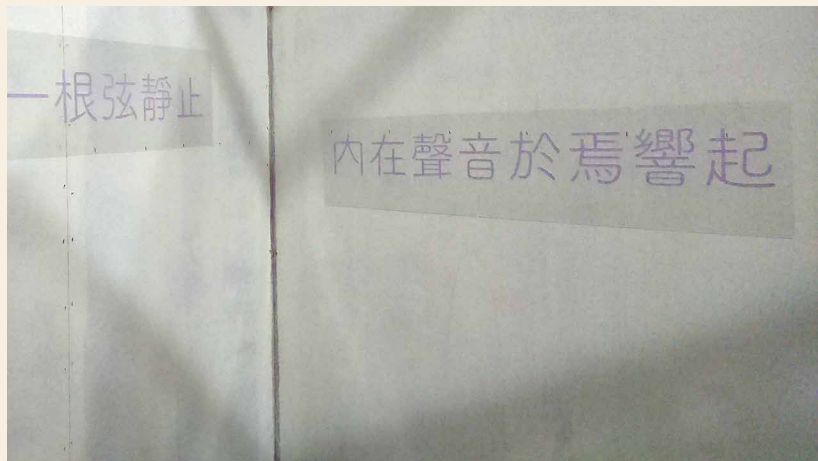 一根弦靜止
內在聲音於焉響起